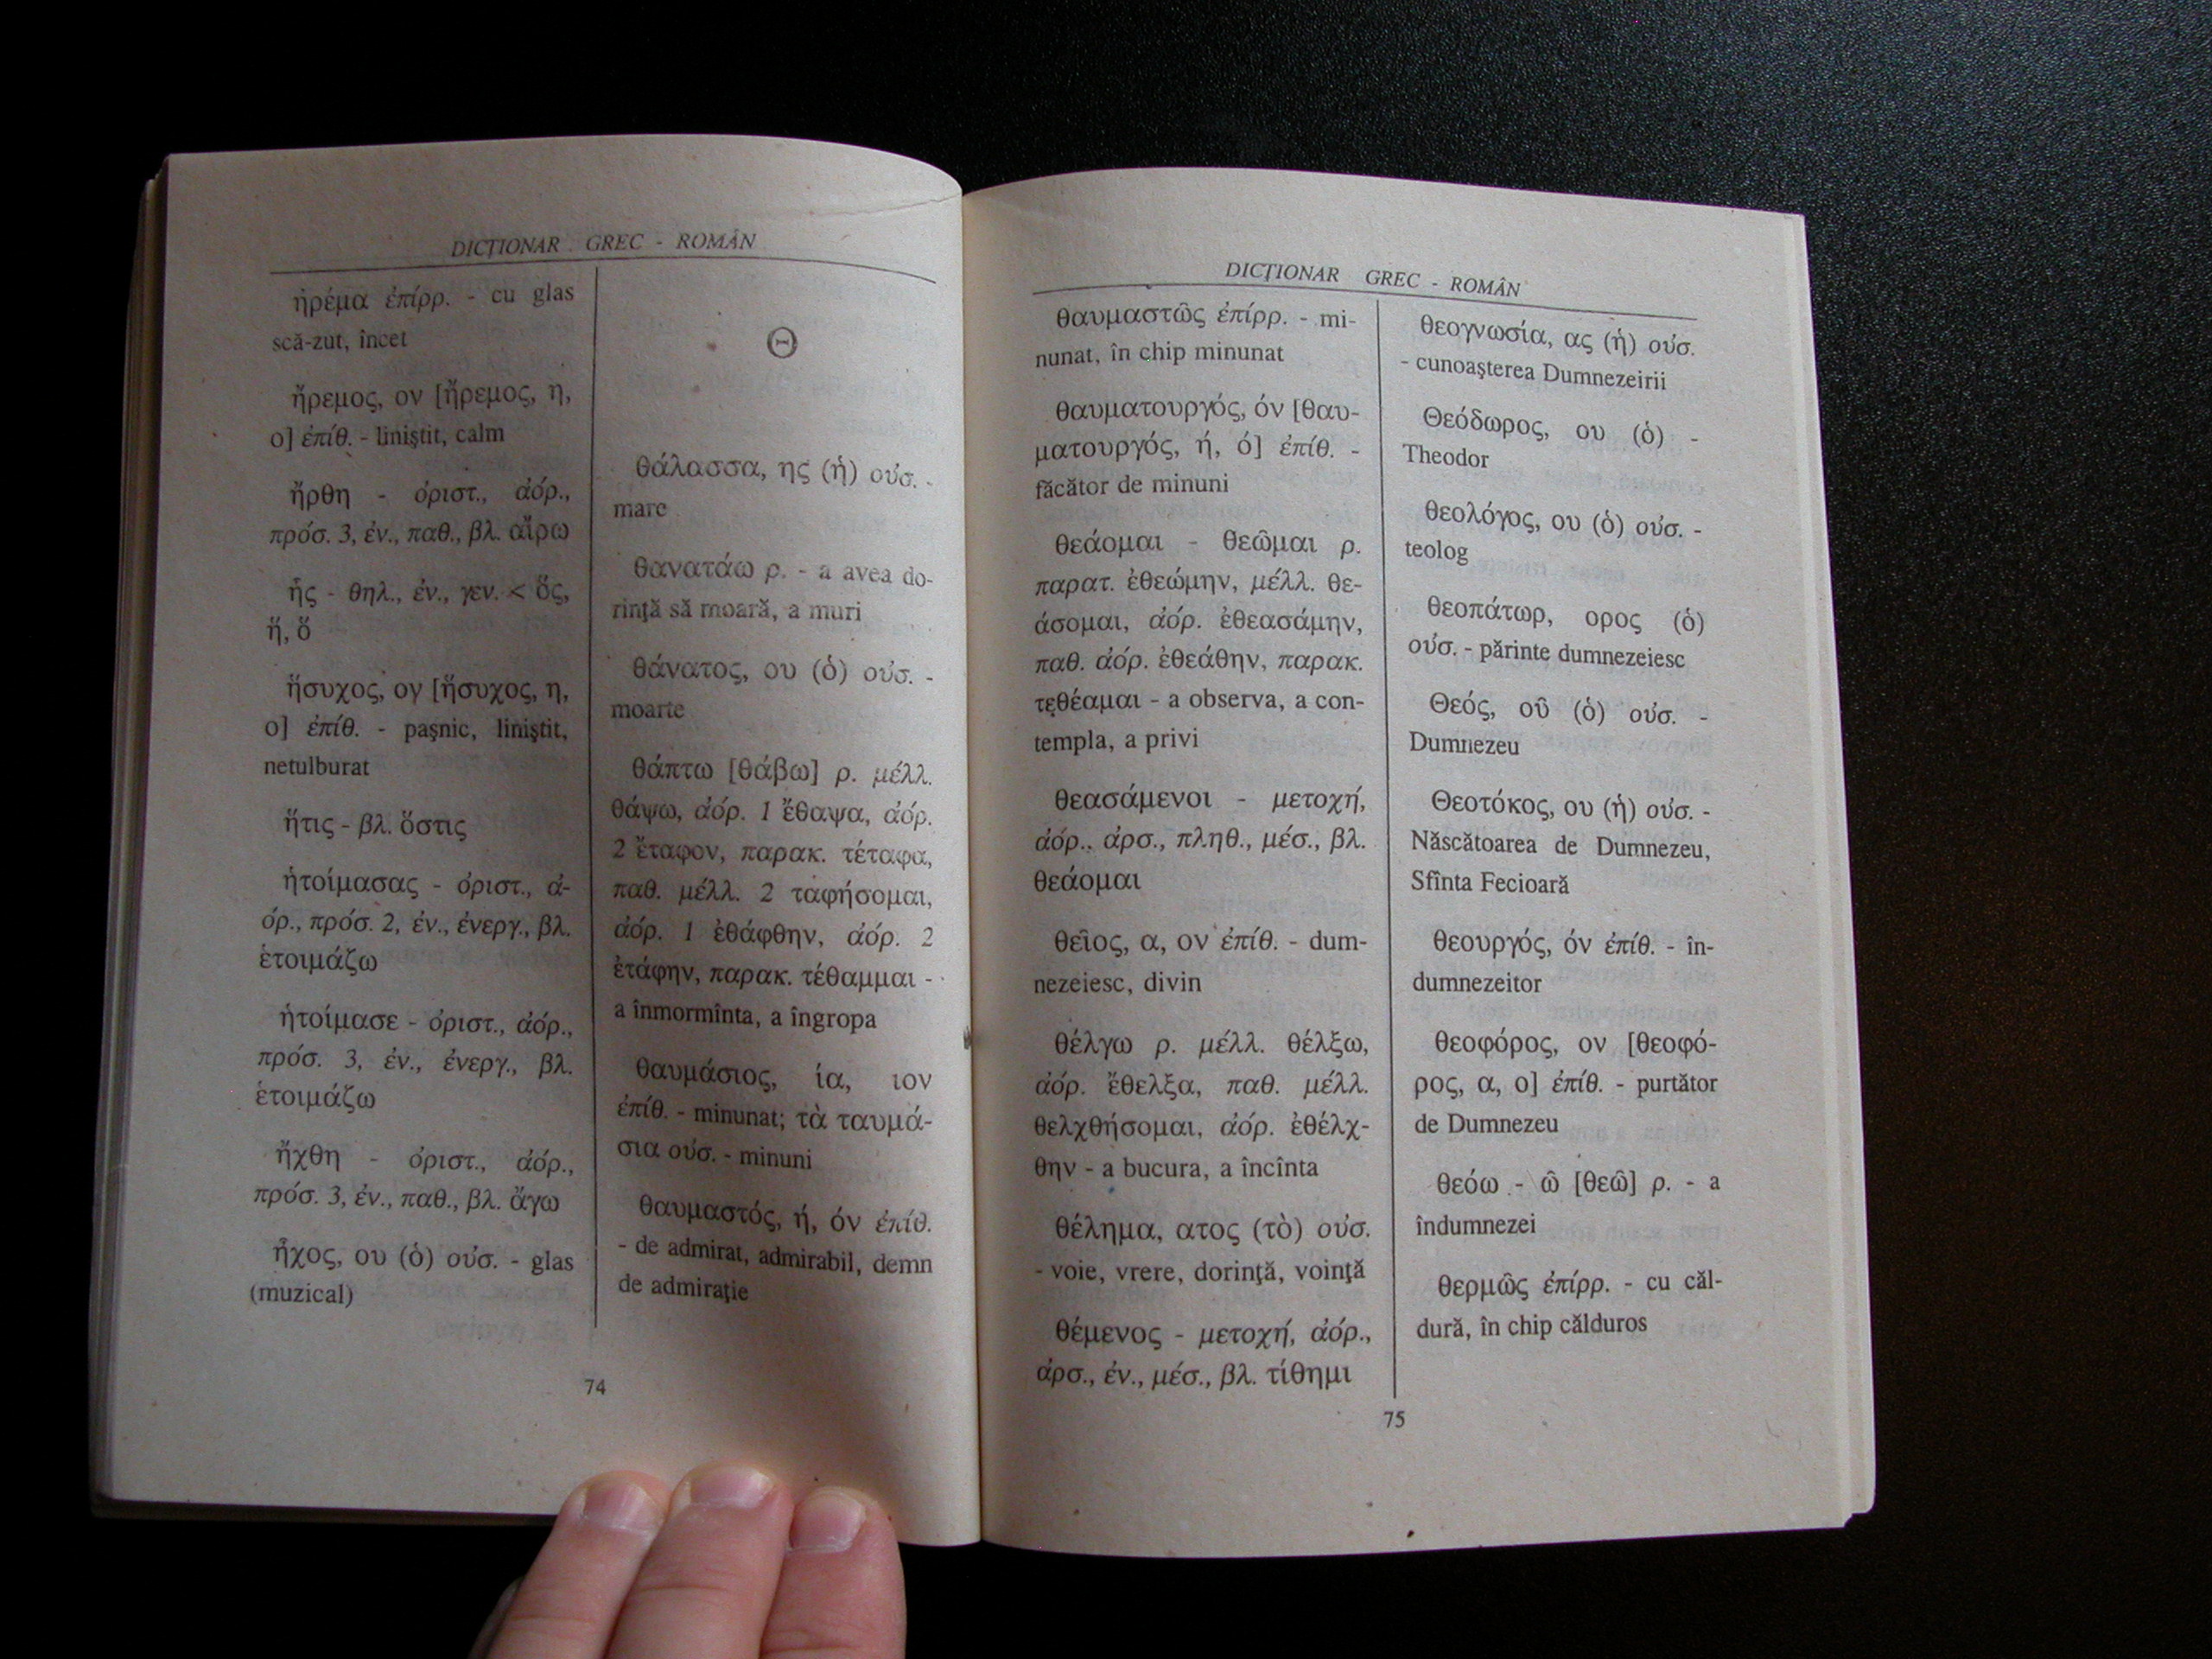 DICŢIONAR GREC - ROMÂN
ἠρέμα ἐπίρρ. - cu glas
scă-zut, încet
ἤρεμος, ον [ἤρεμος, η,
ο] ἐπίθ. - liniştit, calm
ἤρθη - ὁριστ., ἀόρ.,
πρόσ. 3, ἑν., παθ., βλ. αἴρω
ἧς - θηλ., ἑν., γεν. < ὅς,
ἥ, ὅ
ἥσυχος, ον [ἥσυχος, η,
ο] ἐπίθ. - paşnic, liniştit,
netulburat
ἥτις - βλ. ὅστις
ἡτοίμασας - ὁριστ., ἀ-
όρ., πρόσ. 2, ἑν., ἐνεργ., βλ.
ἑτοιμάζω
ἡτοίμασε - ὁριστ., ἀόρ.,
πρόσ. 3, ἑν., ἐνεργ., βλ.
ἑτοιμάζω
ἤχθη - ὁριστ., ἀόρ.,
πρόσ. 3, ἑν., παθ., βλ. ἄγω
ἦχος, ου (ὁ) οὐσ. - glas
(muzical)
Θ
θάλασσα, ης (ἡ) οὐσ. -
mare
θανατάω ρ. - a avea do-
rinţă să moară, a muri
θάνατος, ου (ὁ) οὐσ. -
moarte
θάπτω [θάβω] ρ. μέλλ.
θάψω, ἀόρ. 1 ἔθαψα, ἀόρ.
2 ἔταφον, παρακ. τέταφα,
παθ. μέλλ. 2 ταφήσομαι,
ἀόρ. 1 ἐθάφθην, ἀόρ. 2
ἐτάφην, παρακ. τέθαμμαι -
a înmormînta, a îngropa
θαυμάσιος, ία, ιον
ἐπίθ. - minunat; τὰ ταυμά-
σια οὐσ. - minuni
θαυμαστός, ή, όν ἐπίθ.
- de admirat, admirabil, demn
de admiraţie
74
DICŢIONAR GREC - ROMÂN
θαυμαστῶς ἐπίρρ. - mi-
nunat, în chip minunat
θαυματουργός, όν [θαυ-
ματουργός, ή, ό] ἐπίθ. -
făcător de minuni
θεάομαι - θεῶμαι ρ.
παρατ. ἐθεώμην, μέλλ. θε-
άσομαι, ἀόρ. ἐθεασάμην,
παθ. ἀόρ. ἐθεάθην, παρακ.
τεθέαμαι - a observa, a con-
templa, a privi
θεασάμενοι - μετοχή,
ἀόρ., ἀρσ., πληθ., μέσ., βλ.
θεάομαι
θεῖος, α, ον ἐπίθ. - dum-
nezeiesc, divin
θέλγω ρ. μέλλ. θέλξω,
ἀόρ. ἔθελξα, παθ. μέλλ.
θελχθήσομαι, ἀόρ. ἐθέλχ-
θην - a bucura, a încînta
θέλημα, ατος (τὸ) οὐσ.
- voie, vrere, dorinţă, voinţă
θέμενος - μετοχή, ἀόρ.,
ἀρσ., ἑν., μέσ., βλ. τίθημι
θεογνωσία, ας (ἡ) οὐσ.
- cunoaşterea Dumnezeirii
Θεόδωρος, ου (ὁ) -
Theodor
θεολόγος, ου (ὁ) οὐσ. -
teolog
θεοπάτωρ, ορος (ὁ)
οὐσ. - părinte dumnezeiesc
Θεός, οῦ (ὁ) οὐσ. -
Dumnezeu
Θεοτόκος, ου (ἡ) οὐσ. -
Născătoarea de Dumnezeu,
Sfînta Fecioară
θεουργός, όν ἐπίθ. - în-
dumnezeitor
θεοφόρος, ον [θεοφό-
ρος, α, ο] ἐπίθ. - purtător
de Dumnezeu
θεόω - ῶ [θεῶ] ρ. - a
îndumnezei
θερμῶς ἐπίρρ. - cu căl-
dură, în chip călduros
75